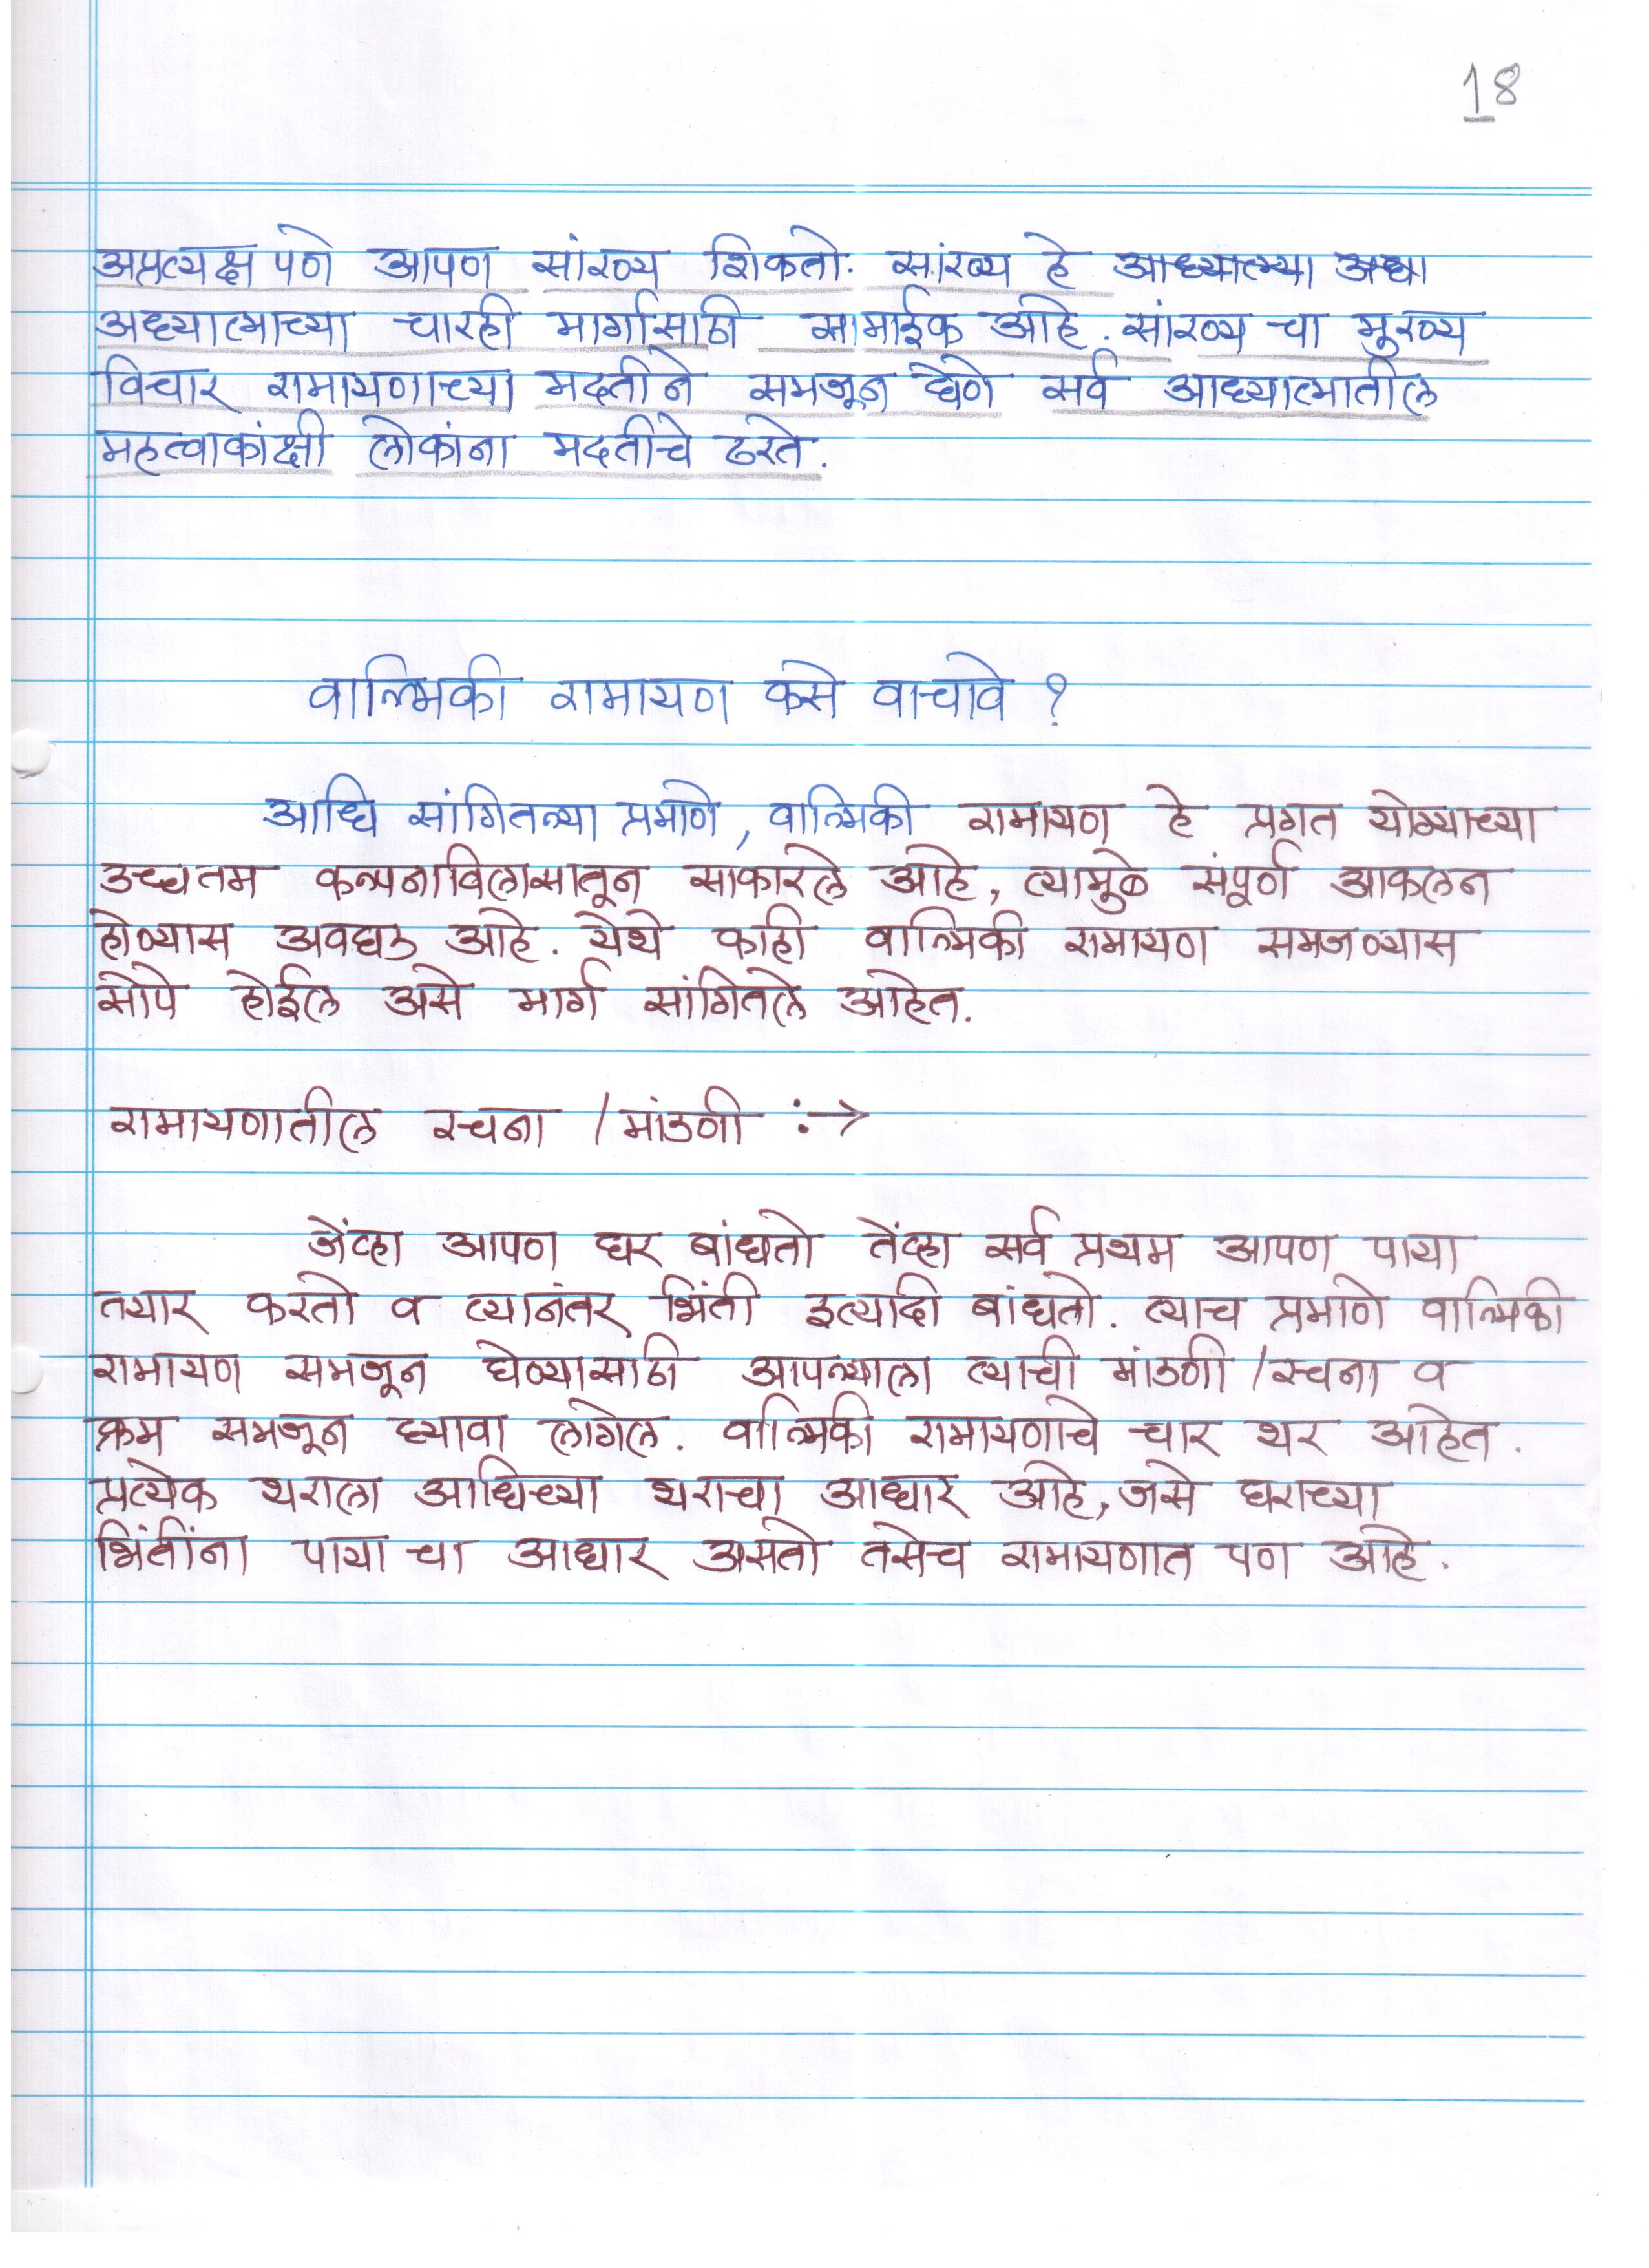 18
अप्रत्यक्ष पणे आपण सांख्य शिकतो. सांख्य हे आध्यात्म्या
अध्यात्माच्या चारही मार्गांसाठी सामाईक आहे. सांख्य चा मुख्य
विचार रामायणाच्या मदतीने समजून घेणे सर्व आध्यात्मातील
महत्वाकांक्षी लोकांना मदतीचे ठरते.
वाल्मिकी रामायण कसे वाचावे ?
आधि सांगितल्या प्रमाणे, वाल्मिकी रामायण हे प्रगत योग्याच्या
उच्चतम कल्पनाविलासातून साकारले आहे, त्यामुळे संपूर्ण आकलन
होण्यास अवघड आहे. येथे काही वाल्मिकी रामायण समजण्यास
सोपे होईल असे मार्ग सांगितले आहेत.
रामायणातील रचना / मांडणी :→
जेंव्हा आपण घर बांधतो तेंव्हा सर्व प्रथम आपण पाया
तयार करतो व त्यानंतर भिंती इत्यादी बांधतो. त्याच प्रमाणे वाल्मिकी
रामायण समजून घेण्यासाठी आपल्याला त्याची मांडणी / रचना व
क्रम समजून घ्यावा लागेल. वाल्मिकी रामायणाचे चार थर आहेत.
प्रत्येक थराला आधिच्या थराचा आधार आहे, जसे घराच्या
भिंतींना पाया चा आधार असतो तसेच रामायणात पण आहे.